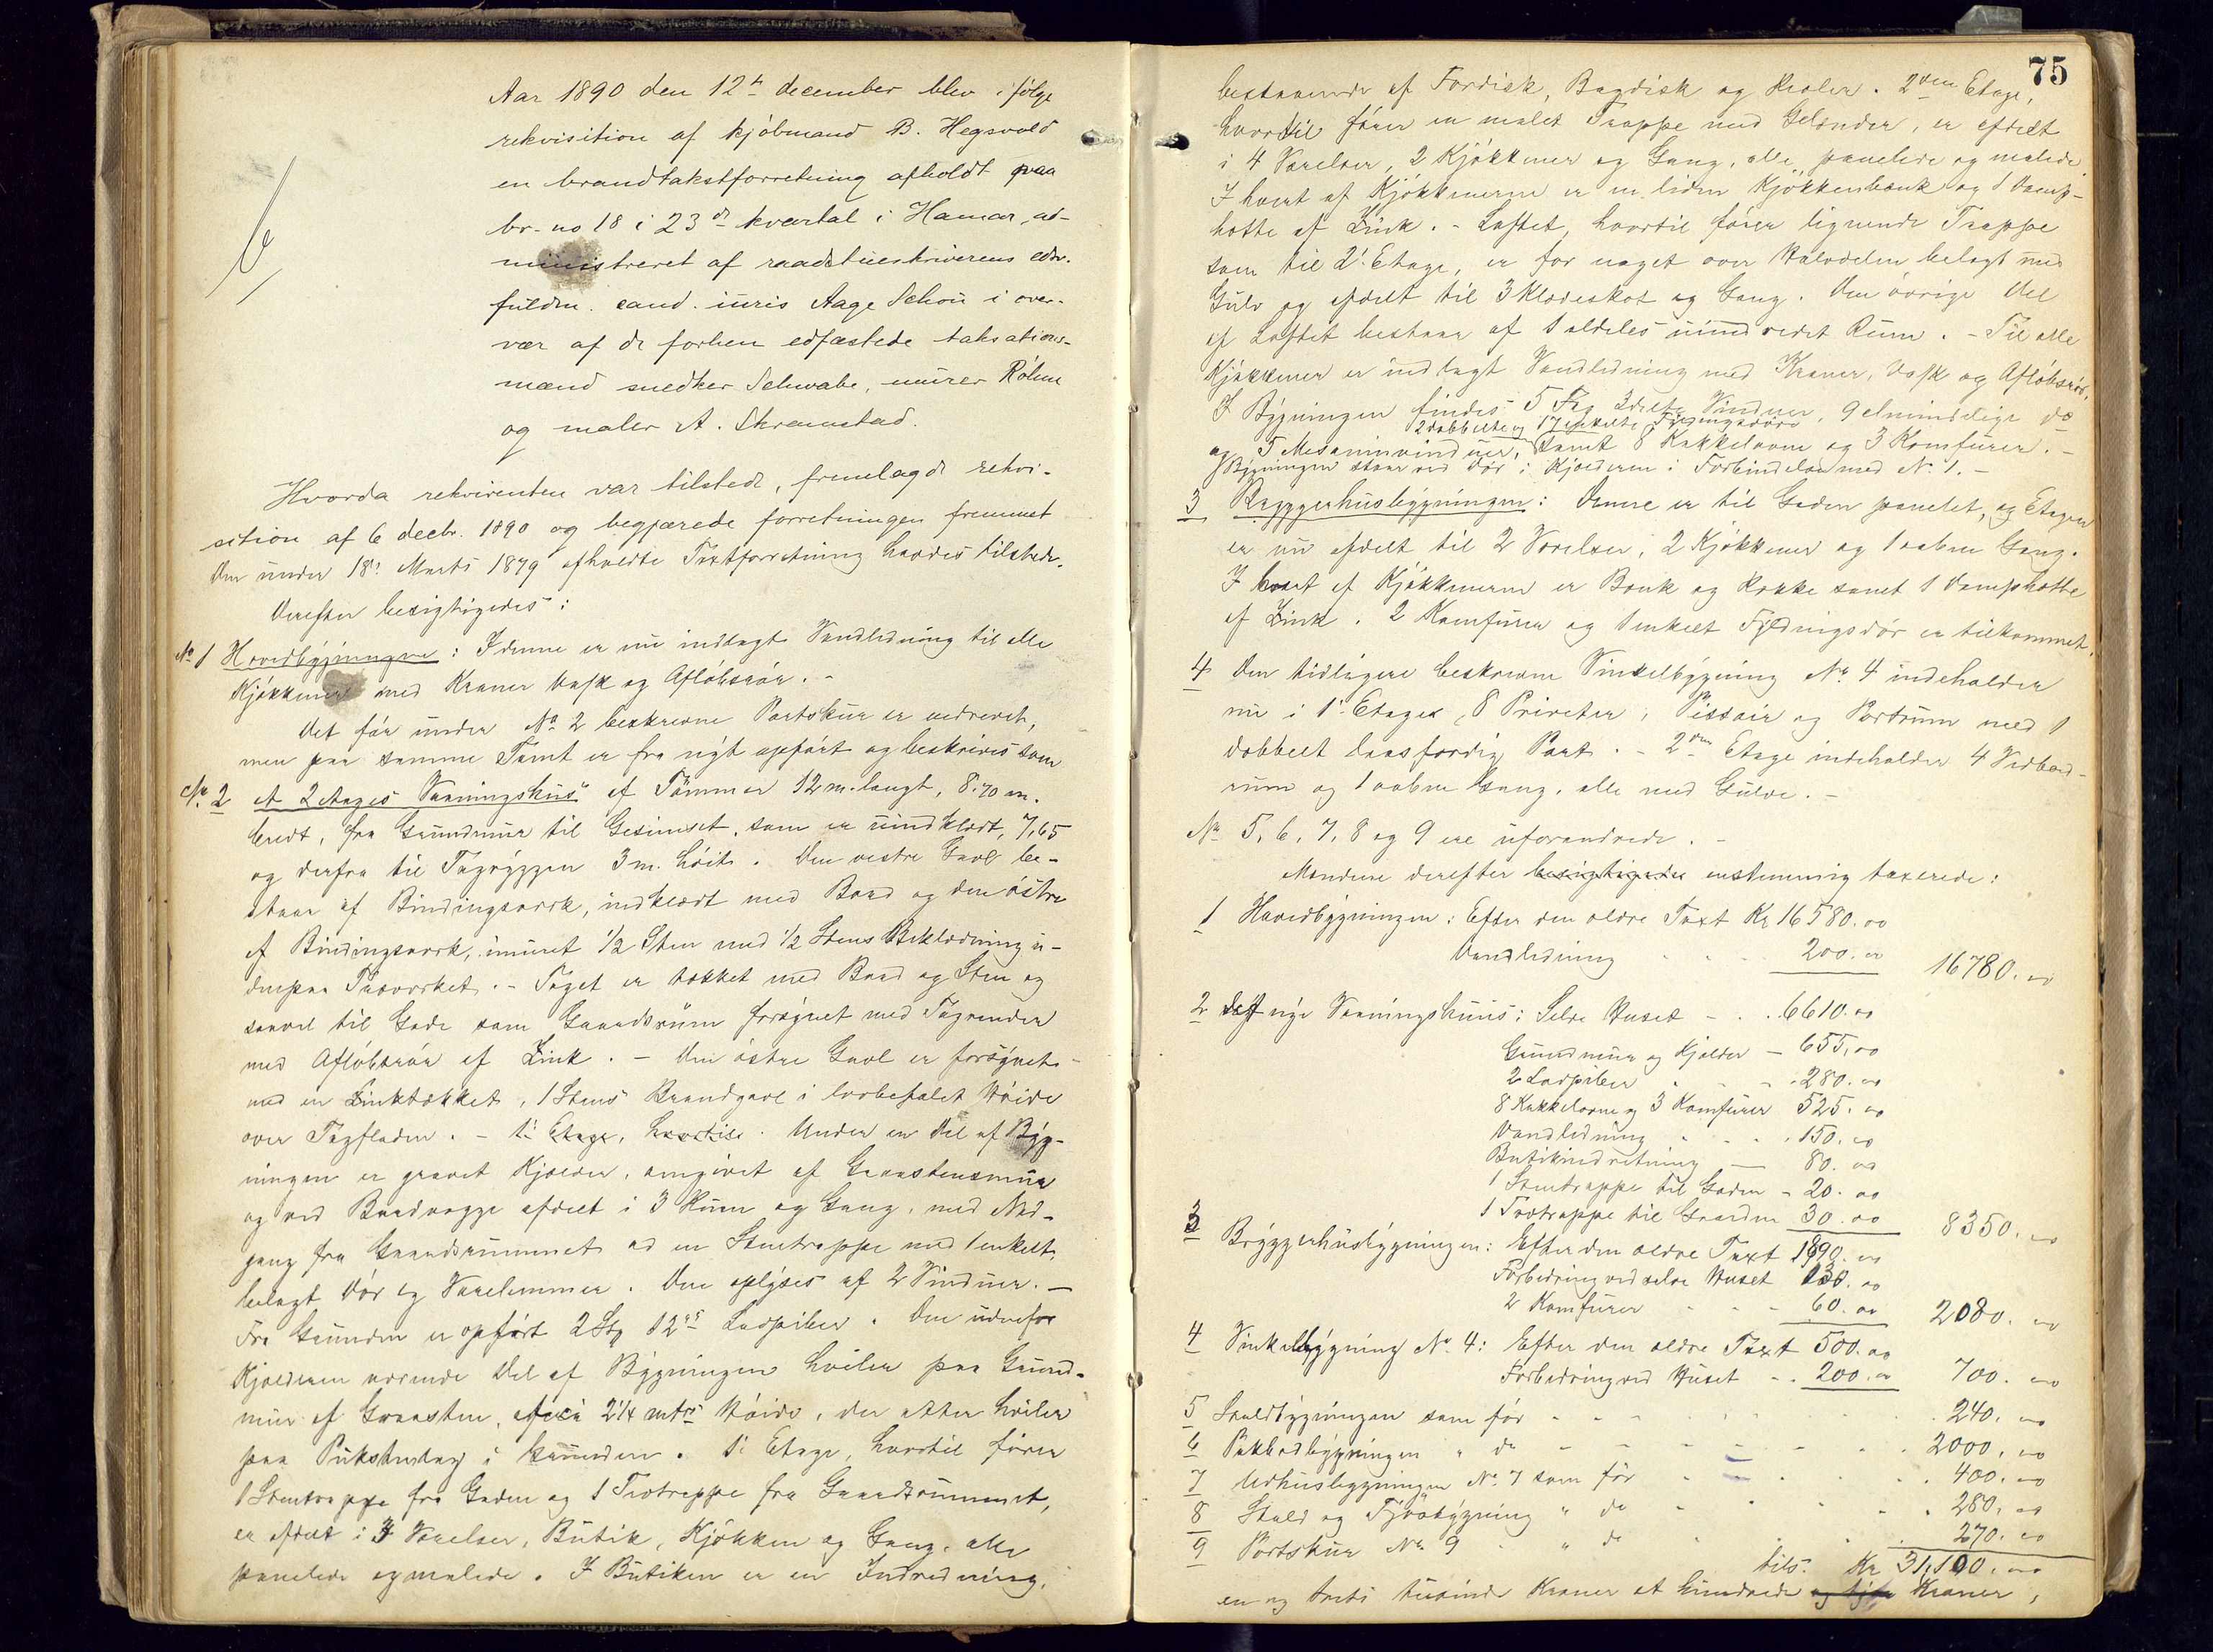 Aar 1890 den 12te december blev ifølge
rekvisition af kjøbmand B. Hegsvold
en brandtakstforretning afholdt paa
br. no 18 i 23de kvartal i Hamar, ad-
ministreret af raadstueskriverens edsv.
fuldm. cand. juris Aage Schou i over-
vær af de forhen edfæstede taksations-
mænd snedker Schwabe, murer Röhne
og maler A. Skramstad.
Hvorda rekvirenten var tilstede, fremlagde rekvi-
sition af 6 decbr. 1890 og begjærede forretningen fremmet
Den under 18de Marts 1879 afholdte Taxtforretning havdes tilstede.
Derefter besigtigedes:
No 1 Hovedbygningen: I denne er nu indlagt Vandledning til alle
Kjøkkener med Kraner Vask og Afløbsrør. -
Det før under No 2 beskrevne Portskur er nedrevet,
men paa samme Tomt er fra nyt opført og beskrives som
No 2 et 2 Etages Vaaningshus af Tømmer 12 m. langt, 8.70 m.
bredt, fra Grundmur til Gesimset, som er indklædt, 7,65
og derfra til Tagryggen 3 m. høit. Den vestre Gavl be-
staar af Bindingsverk, indklædt med Bord og den østre
af Bindingsverk, muret 1/2 Sten med 1/2 Stens Beklædning u-
denpaa Træverket. - Taget er tækket med Bord og Sten og
saavel til Gade som Gaardsrum forsynet med Tagrender
med Afløbsrør af Zink. - Den østre Gavl er forsynet
med en Zinktækket, 1 Stens Brandgavl i lovbefalet Høide
over Tagfladen. - 1ste Etage, hvortil. Under en Del af Byg-
ningen er gravet Kjælder, omgivet af Graastensmur
og ved Bordvægge afdelt i 3 Rum og Gang, med Ned-
gang fra Gaardsrummet ad en Stentrappe med 1 enkelt
belagt Dør og Varelemmer. Den oplyses af 2 Vinduer. -
Fra Grunden er opført 2 Stk 12" Ludpiber. Den udenfor
Kjælderen værende Del af Bygningen hviler paa Grund-
mur af Graasten, af ca 2 1/4 mtrs Høide, der atter hviler
paa Pukstenslag i Grunden. 1ste Etage, hvortil fører
1 Stentrappe fra Gaden og 1 Trætrappe fra Gaardsrummet,
er afdelt i 3 Værelser, Butik, Kjøkken og Gang, alle
panelede og malede. I Butiken er en Indredning,
75
bestaaende af Fordisk, Bagdisk og Reoler. 2den Etage,
hvortil fører en malet Trappe med Gelænder, er afdelt
i 4 Værelser, 2 Kjøkkener og Gang, alle panelede og malede
I hvert af Kjøkkenerne er en liden Kjøkkenbænk og 1 Damp-
hætte af Zink. - Loftet, hvortil fører lignende Trappe
som til 2. Etage, er for noget over Halvdelen belagt med
Gulv og afdelt til 3 Klædeskot og Gang. Den øvrige Del
af Loftet bestaar af 1 aldeles uindredet Rum. - Til alle
Kjøkkener er indlagt Vandledning med Kraner, Vask og Afløbsrør.
I Bygningen findes 5 Fag 3delte Vinduer, 9 almindelige do
2 dobbelte og 17 enkelte Fyldingsdøre
og 5 Mesaninvinduer, samt 8 Kakkelovne og 3 Komfurer. -
Bygningen staar ved Dør i Kjælderen i Forbindelse med No 1. -
3 Bryggerhusbygningen: Denne er til Gaden panelet, og Etagen
er nu afdelt til 2 Værelser, 2 Kjøkkener og 1 aaben Gang.
I hvert af Kjøkkenerne er Bænk og Række samt 1 Damphætte
af Zink. 2 Komfurer og 1 enkelt Fyldningsdør er tilkommet.
4 Den tidligere beskrevne Vinkelbygning No 4 indeholder
nu i 1ste Etage, 8 Priveter, Pissoir og Portrum med 1
dobbelt laasfærdig Port. - 2den Etage indeholder 4 Vedbod-
rum og 1 aaben Gang, alle med Gulve. -
No 5, 6, 7, 8 og 9 ere uforandrede. -
Mændene derefter besigtigede enstemmig taxerede:
1 Hovedbygningen: Efter den ældre Taxt Kr 16580.00
Vandledning 200.00 16780.00
2 Det nye Vaaningshuus: Selve Huset - 6610.00
Grundmur og Kjælder - 655,00
2 Ludpiber - 280.00
8 Kakkelovne og 3 Komfurer 525.00
Vandledning 150.00
Butikindretning - 80.00
1 Stentrappe til Gaden - 20.00
1 Trætrappe til Gaarden 30.00 8350.00
3 Bryggerhusbygningen: Efter den ældre Taxt 1890.00
Forbedring ved selve Huset 130.00
2 Komfurer - 60.00 2080.00
4 Vinkelbygning No 4: Efter den ældre Taxt 500.00
Forbedring ved Huset - 200.00 700.00
5 Staldbygningen som før 240.00
6 Pakbodbygningen " do 2000.00
7 Udhusbygningen No 7 som før 400.00
8 Stald og Fjøsbygning " do 280.00
9 Portskur No 9 " do 270.00
tils. Kr 31,100.00
en og treti tusinde Kroner et hundrede og ti Kroner,